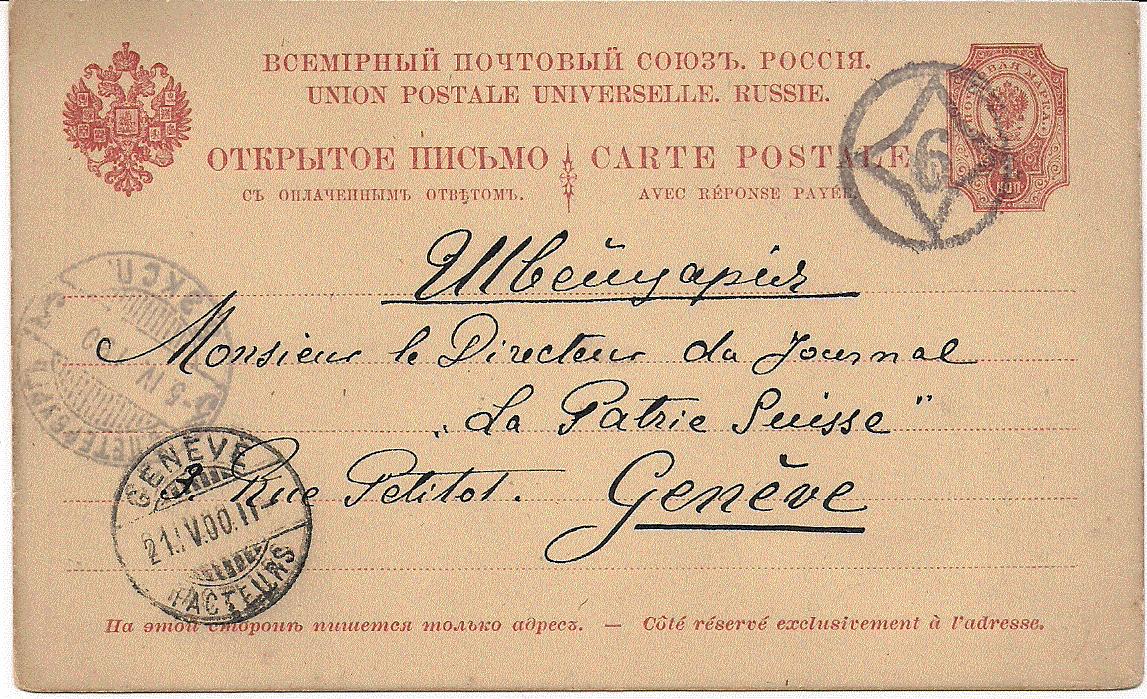 ВСЕМІРНЫЙ ПОЧТОВЫЙ СОЮЗЪ. РОССІЯ.
UNION POSTALE UNIVERSELLE. RUSSIE.
ОТКРЫТОЕ ПИСЬМО CARTE POSTALE
СЪ ОПЛАЧЕННЫМЪ ОТВѢТОМЪ. AVEC RÉPONSE PAYÉE.
6
ПОЧТОВАЯ МАРКА.
4
КОП
Швейцарія
Monsieur le Directeur du Journal
„La Patrie Suisse"
8. Rue Petitot. Genève
ПЕТЕРБУРГЪ
ЭКСП
-5 IV
GENÈVE
21.IV.00.11
FACTEURS
На этой сторонѣ пишется только адресъ. — Côté réservé exclusivement à l'adresse.